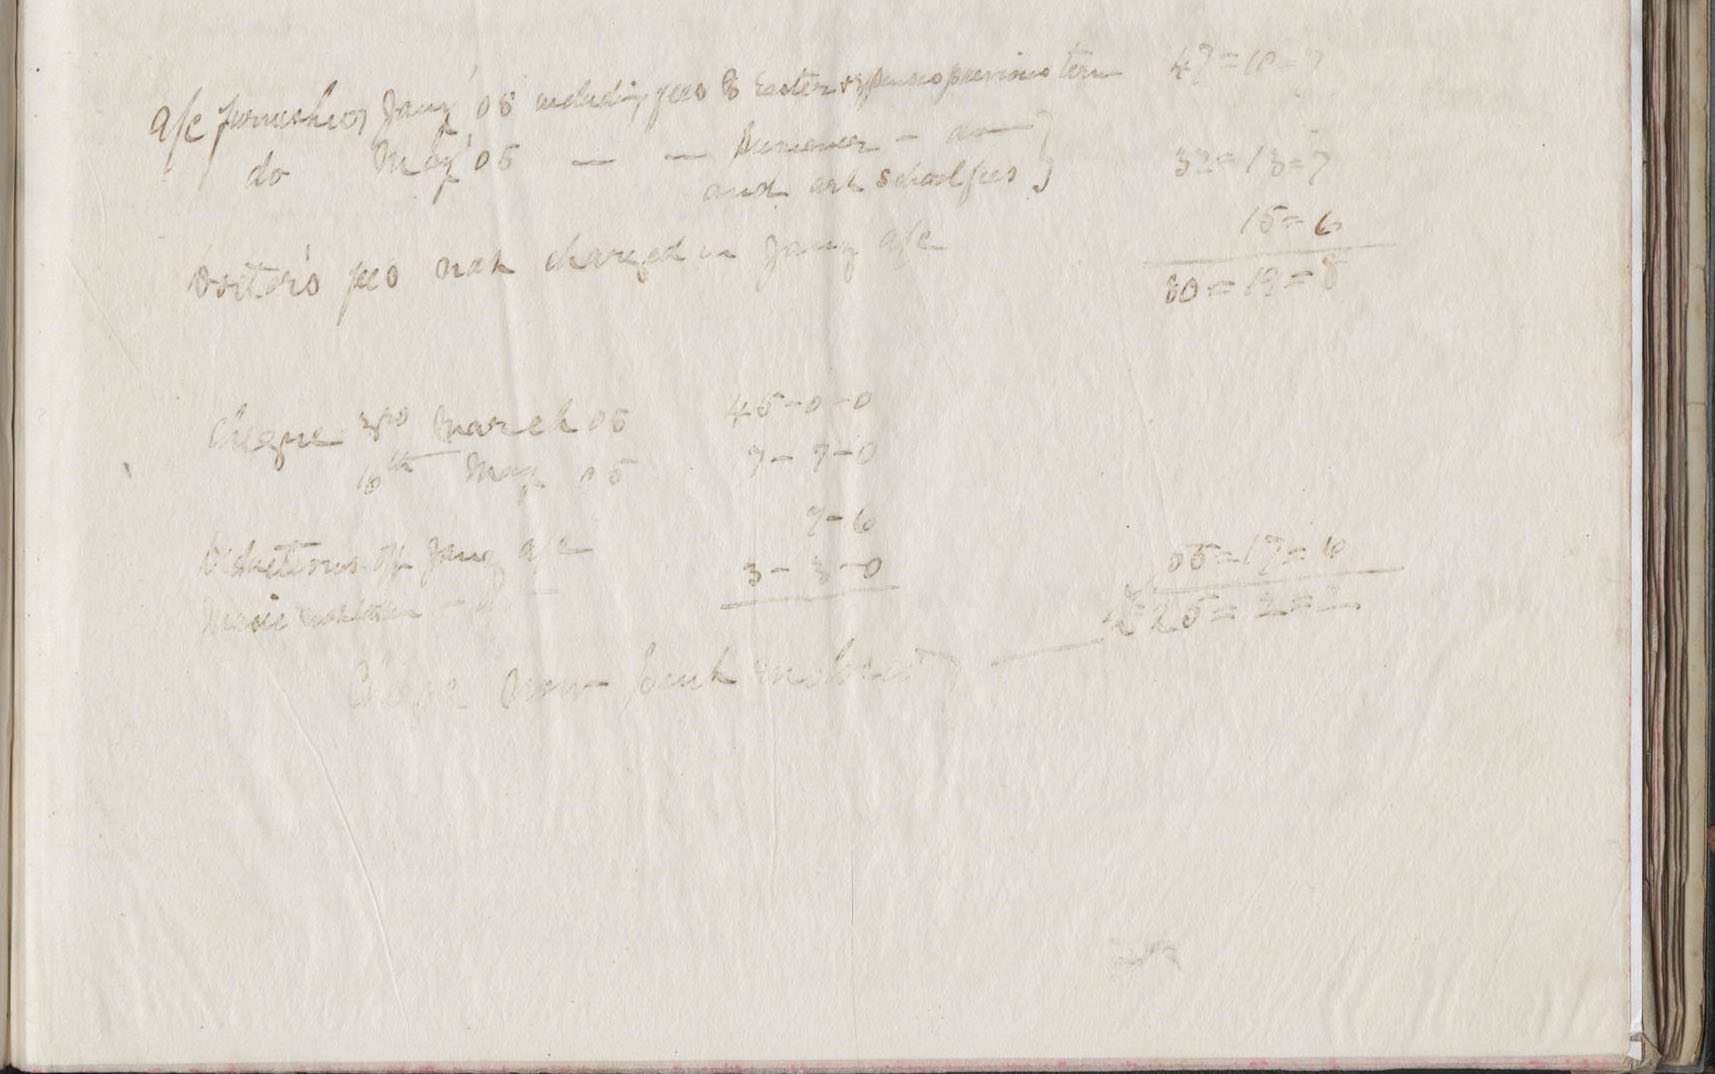 a/c furnished Jany '05 including fees to Easter & expenses previous term 47=10=7
do May '05 — — Summer - do
and art school fees } 32=13=7
Doctor's fees not charged in Jany a/c 15=6
80=19=8
Cheque 3rd March 05 45-0-0
16th May 05 7-7-0
Deductions off Jany a/c 7-6
Music 3-3-0 55=17=6
Cheque now sent — £25=2=2